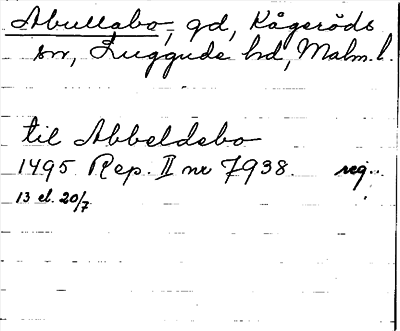 Abullabo, gd, Kågeröds
sn, Luggude hd, Malm. l.
til Abbeldebo
1495 Rep. II nr 7938. reg.
13 el. 20/7